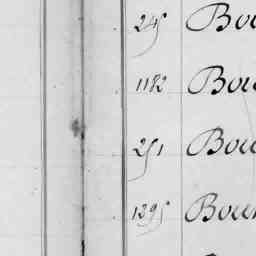 245 Bou
1182 Bou
251 Bou
1295 Bour